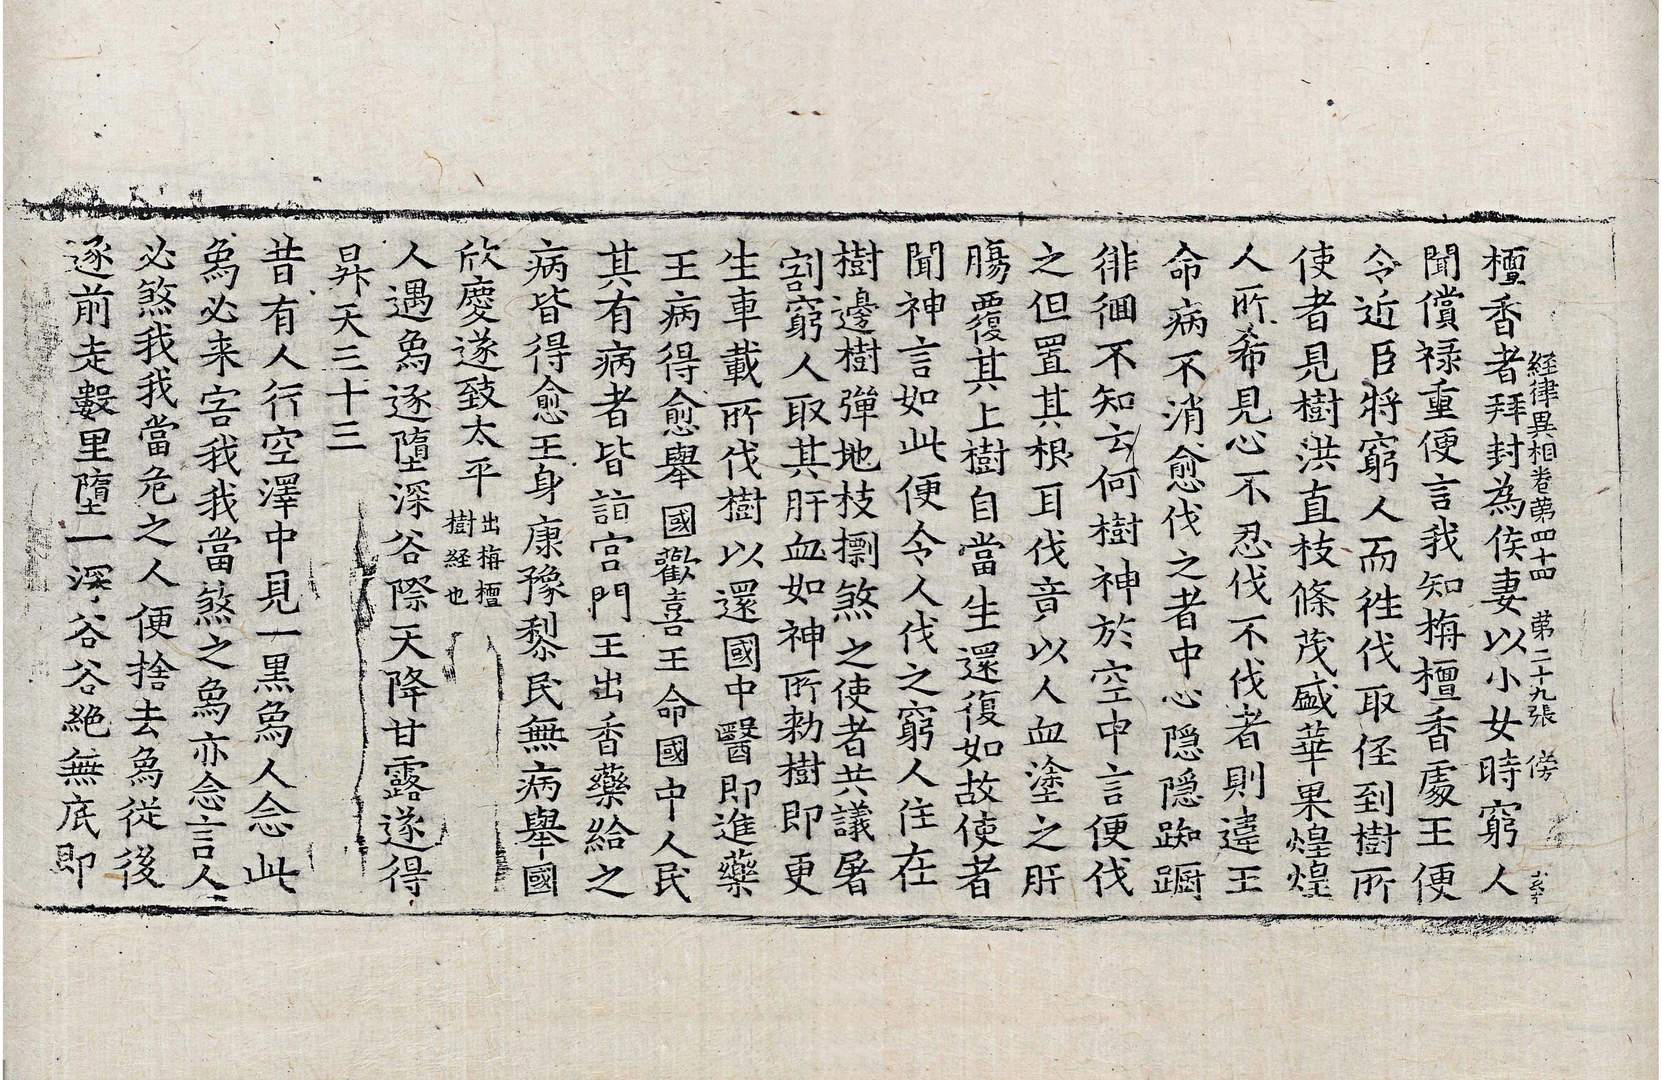 經律異相卷第四十四　第二十九張　傍
檀香者拜封為侯妻以小女時窮人
聞償祿重便言我知栴檀香處王便
令近臣將窮人而往伐取侄到樹所
使者見樹洪直枝條茂盛華果煌煌
人所希見心不忍伐不伐者則違王
命病不消愈伐之者中心隱隱踟蹰
徘徊不知云何樹神於空中言便伐
之但置其根耳伐音以人血塗之肝
膓覆其上樹自當生還復如故使者
聞神言如此便令人伐之窮人住在
樹邊樹彈地枝摽煞之使者共議屠
割窮人取其肝血如神所勑樹即更
生車載所伐樹以還國中醫即進藥
王病得愈舉國歡喜王命國中人民
其有病者皆詣宮門王出香藥給之
病皆得愈王身康豫黎民無病舉國
欣慶遂致太平
出栴檀
樹経也
人遇爲逐墮深谷際天降甘露遂得
昇天三十三
昔有人行空澤中見一黑爲人念此
爲必来害我我當煞之爲亦念言人
必煞我我當危之人便捨去爲従後
逐前走數里墮一深谷谷絶無底即